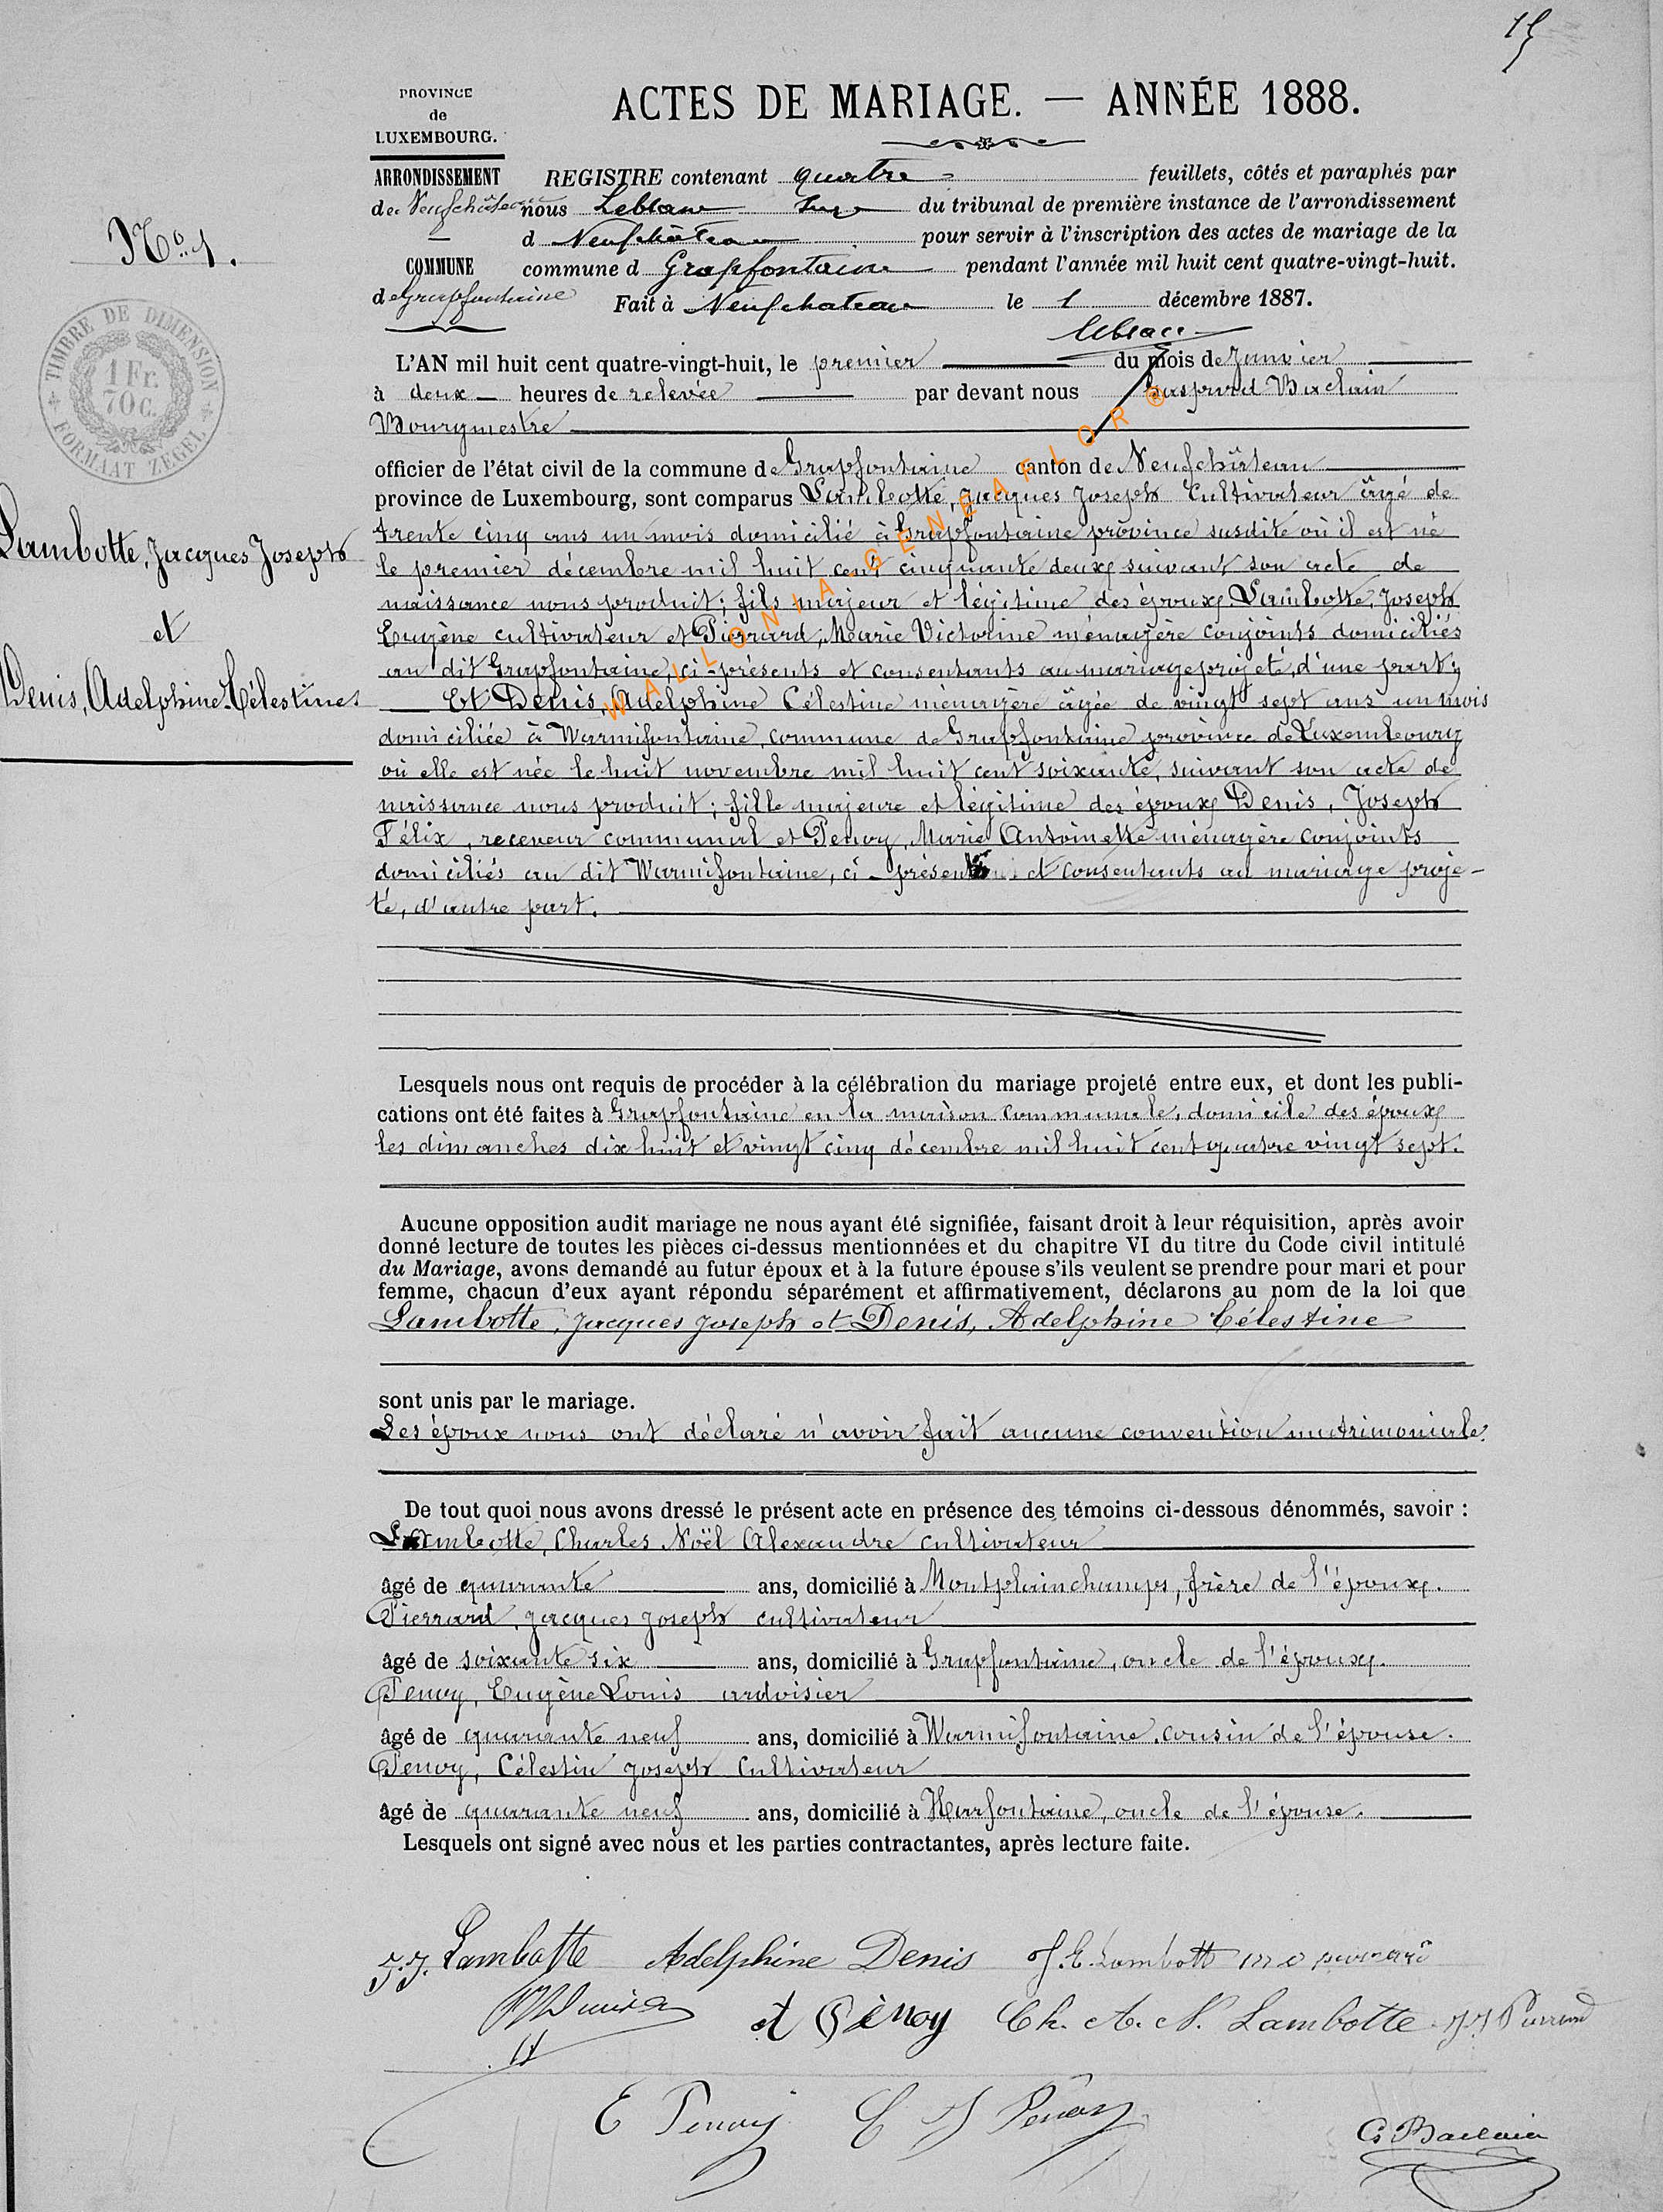 15
PROVINCE
de
LUXEMBOURG.
ACTES DE MARIAGE. — ANNÉE 1888.
ARRONDISSEMENT
de Neufchâteau
COMMUNE
de Grapfontaine
REGISTRE contenant quatre feuillets, côtés et paraphés par
nous Leblanc du tribunal de première instance de l'arrondissement
d Neufchâteau pour servir à l'inscription des actes de mariage de la
commune d Grapfontaine pendant l'année mil huit cent quatre-vingt-huit.
Fait à Neufchateau le 1 décembre 1887.
Leblanc
No. 1.
TIMBRE DE DIMENSION
1 Fr.
70 c.
FORMAAT ZEGEL
L'AN mil huit cent quatre-vingt-huit, le premier du mois de Janvier
à deux heures de relevée par devant nous Gaspard Baclain
Bourgmestre
officier de l'état civil de la commune de Grapfontaine canton de Neufchâteau
province de Luxembourg, sont comparus Lambotte, Jacques Joseph Cultivateur âgé de
trente cinq ans un mois domicilié à Grapfontaine province susdite où il est né
le premier décembre mil huit cent cinquante deux suivant son acte de
naissance nous produit; fils majeur et légitime des époux Lambotte, Joseph
Eugène cultivateur et Pierrard, Marie Victorine ménagère conjoints domiciliés
au dit Grapfontaine, ci-présents et consentants au mariage projeté, d'une part;
Et Denis, Adelphine Célestine ménagère âgée de vingt sept ans un mois
domiciliée à Warmifontaine, commune de Grapfontaine province de Luxembourg
où elle est née le huit novembre mil huit cent soixante, suivant son acte de
naissance nous produit; fille majeure et légitime des époux Denis, Joseph
Félix, receveur communal et Penoy, Marie Antoinette ménagère conjoints
domiciliés au dit Warmifontaine, ci-présents et consentants au mariage proje-
té, d'autre part.
Lambotte, Jacques Joseph
et
Denis, Adelphine Célestine
WALLONIA-GENEAFLOR ®
Lesquels nous ont requis de procéder à la célébration du mariage projeté entre eux, et dont les publi-
cations ont été faites à Grapfontaine en la maison communale, domicile des époux
les dimanches dix huit et vingt cinq décembre mil huit cent quatre vingt sept.
Aucune opposition audit mariage ne nous ayant été signifiée, faisant droit à leur réquisition, après avoir
donné lecture de toutes les pièces ci-dessus mentionnées et du chapitre VI du titre du Code civil intitulé
du Mariage, avons demandé au futur époux et à la future épouse s'ils veulent se prendre pour mari et pour
femme, chacun d'eux ayant répondu séparément et affirmativement, déclarons au nom de la loi que
Lambotte, Jacques Joseph et Denis, Adelphine Célestine
sont unis par le mariage.
Les époux nous ont déclaré n'avoir fait aucune convention matrimoniale.
De tout quoi nous avons dressé le présent acte en présence des témoins ci-dessous dénommés, savoir :
Lambotte, Charles Noël Alexandre cultivateur
âgé de quarante ans, domicilié à Montplainchamps, frère de l'époux.
Pierrard, Jacques Joseph cultivateur
âgé de soixante six ans, domicilié à Grapfontaine, oncle de l'époux.
Penoy, Eugène Louis ardoisier
âgé de quarante neuf ans, domicilié à Warmifontaine, cousin de l'épouse.
Penoy, Célestin Joseph Cultivateur
âgé de quarante neuf ans, domicilié à Harfontaine, oncle de l'épouse.
Lesquels ont signé avec nous et les parties contractantes, après lecture faite.
J.J. Lambotte Adelphine Denis J.E. Lambott
A Pènoy Ch. A. N. Lambotte J J Pierrard
E Penoy C J Penoy
G. Baclain